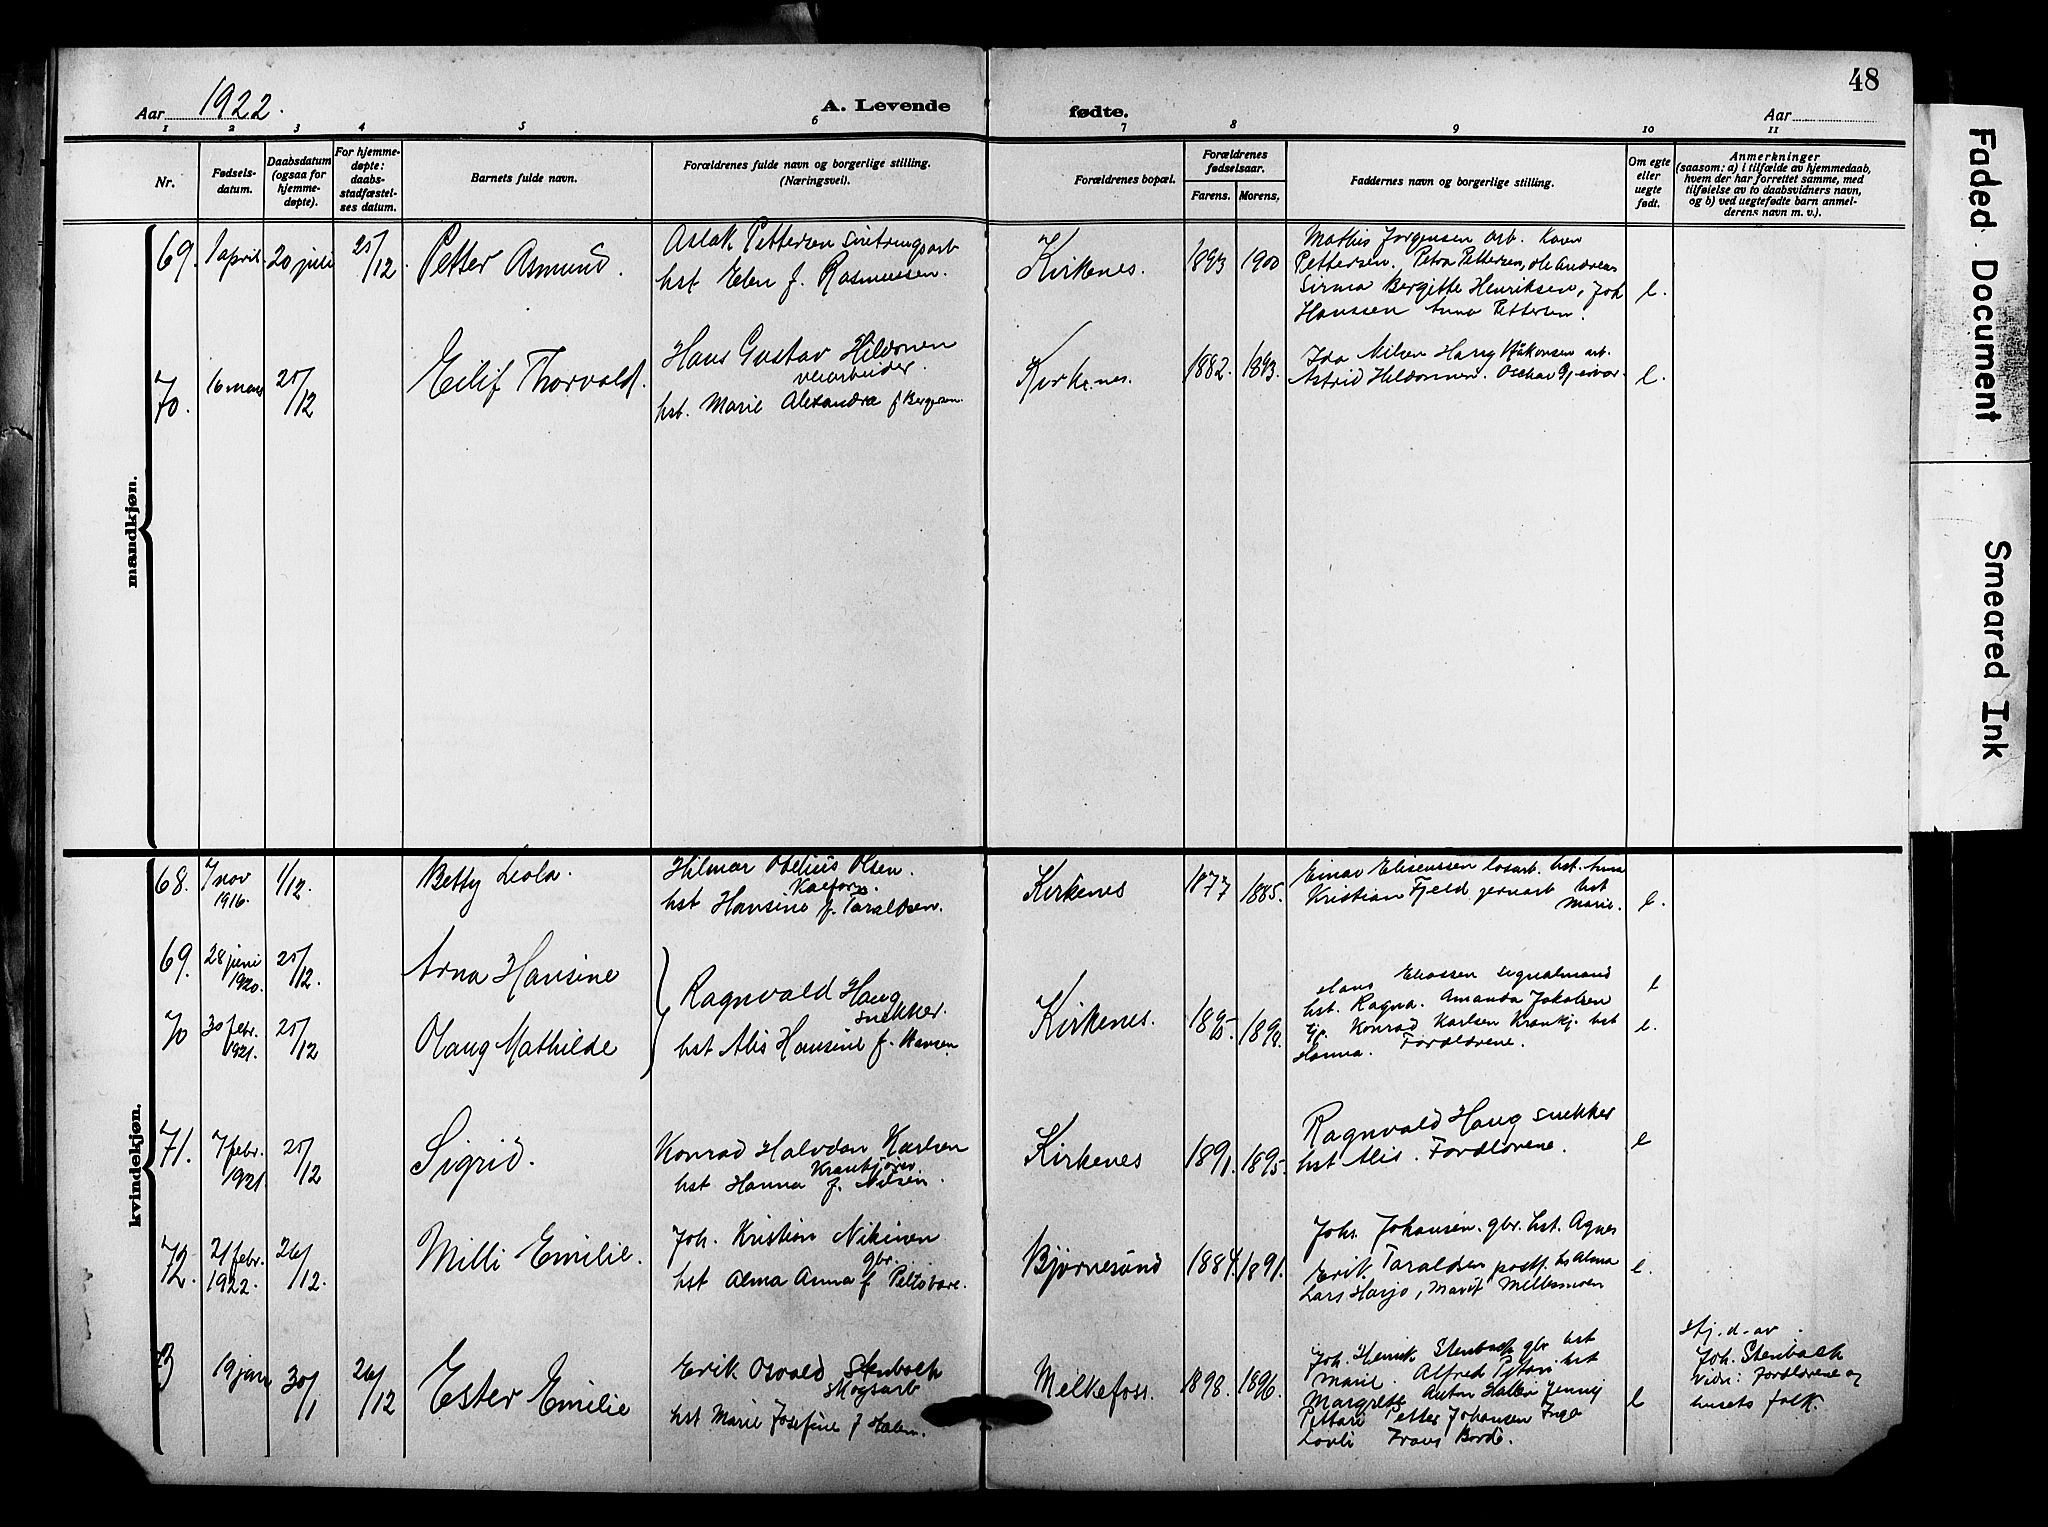 48
Aar 1922.
A. Levende fødte.
Aar
1 2 3 4 5 6 7 8 9 10 11
Nr.
Fødsels-
datum.
Daabsdatum
(ogsaa for
hjemme-
døpte).
For hjemme-
døpte:
daabs-
stadfæstel-
ses datum.
Barnets fulde navn.
Forældrenes fulde navn og borgerlige stilling.
(Næringsvei).
Forældrenes bopæl.
Forældrenes
fødselsaar.
Farens. Morens.
Faddernes navn og borgerlige stilling.
Om egte
eller
uegte
født.
Anmerkninger
(saasom: a) i tilfælde av hjemmedaab,
hvem der har forrettet samme, med
tilføielse av to daabsvidners navn,
og b) ved uegtefødte barn anmel-
derens navn m. v.).
mandkjøn.
69. 1 april 20 juli 25/12 Petter Asmund.
Aslak Pettersen sintringsarb
hst Elen f. Rasmussen.
Kirkenes. 1893 1900
Mathis Jørgensen arb. Karen
Pettersen. Petra Pettersen, Ole Andreas
Sirma Bergitte Henriksen, Joh
Hanssen Anna Pettersen.
e.
70. 16 mars 25/12 Eilif Thorvald.
Hans Gustav Hildonen
veiarbeider.
hst. Marie Alexandra f Bergersen.
Kirkenes. 1882. 1893.
Ida Nilsen Haug Håkonsen arb.
Astrid Hildonnen. Oschar
e.
kvindekjøn.
68. 7 nov 1916. 1/12. Betty Leola.
Hilmar Obelius Olsen.
hst Hansine f. Taraldsen.
Kirkenes 1877 1885.
Einar Elisenssen losarb. hst. Anna
Kristian Fjeld jernarb hst
Marie.
e.
69. 28 juni 1920. 25/12. Arna Hansine
70 30 febr. 1921. 25/12 Olaug Mathilde
Ragnvald Haug
snekker.
hst Alis Hansine f. Hansen
Kirkenes. 1895 1898.
Hans Eliassen signalmand
hst. Ragna. Amanda Jakobsen
tjp. Konrad Karlsen Krankj. hst
Hanna. Forældrene.
e
e.
71. 7 febr. 1921 25/12 Sigrid.
Konrad Halvdan Karlsen
Krankjører
hst Hanna f. Nilsen.
Kirkenes 1891. 1895.
Ragnvald Haug snekker
hst Alis. Forældrene.
e
72. 21 febr. 1922. 26/12. Milli Emilie.
Joh. Kristian Nikinen
gbr.
hst Alma Anna f Peltovare.
Bjørnesund 1884. 1891.
Joh. Johansen. gbr. hst. Agnes
Erik Taraldsen postf. hs Alma
Lars Harjo, Marit
e.
73 19 jan 30/1 26/12 Ester Emilie
Erik Osvald Stenback
skogsarb
hst Marie Josefine f
Melkefoss. 1898. 1896.
Joh. Henrik Stenback gbr hst
Marie. Alfred Petäri hst
Margrette Anton Jenny
Pettari Petter Johansen Inga
Lovli Frans
e
Hj. d. av
Joh. Stenback
Vidn: Forældrene og
husets folk.
Faded Document
Smeared Ink